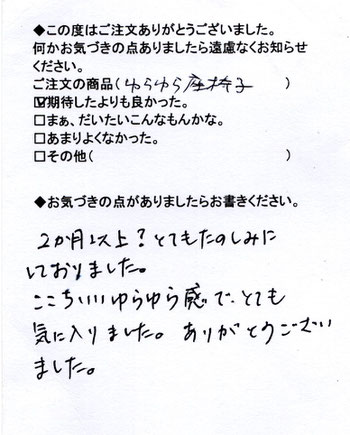 ◆この度はご注文ありがとうございました。
何かお気づきの点ありましたら遠慮なくお知らせ
ください。
ご注文の商品(ゆらゆら座椅子)
☑期待したよりも良かった。
□まぁ、だいたいこんなもんかな。
□あまりよくなかった。
□その他( )
◆お気づきの点がありましたらお書きください。
2か月以上?とてもたのしみに
しておりました。
ここちいいゆらゆら感で、とても
気に入りました。ありがとうござい
ました。